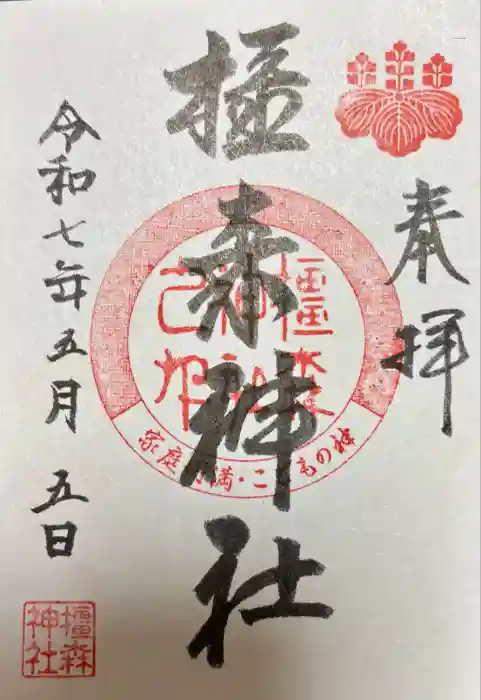 奉拝
橿森神社
家庭円満・こどもの神
令和七年五月五日
橿森
神社